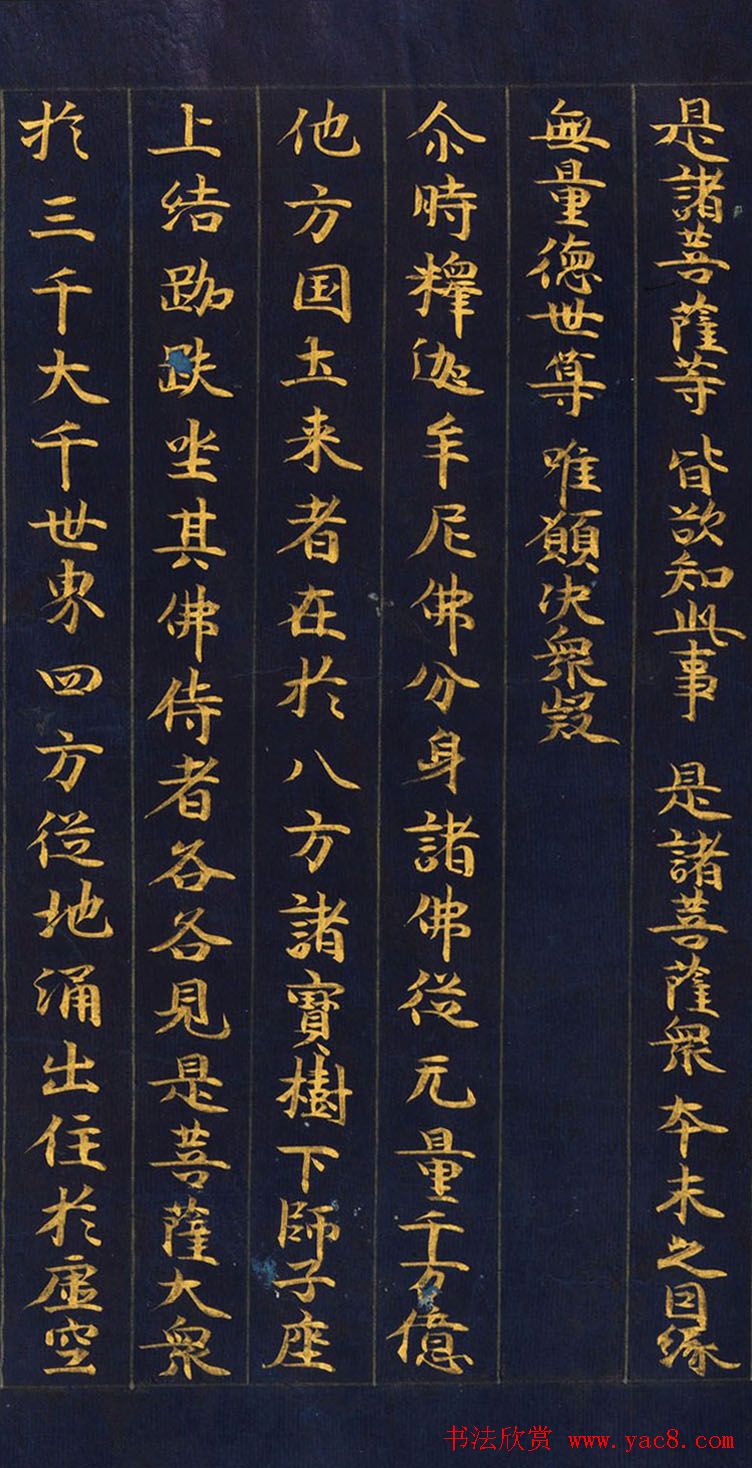 是諸菩薩等 皆欲知此事 是諸菩薩衆 本末之因缘
無量德世尊 唯願决衆疑
尒時釋迦牟尼佛分身諸佛従无量千万億
他方国土来者在於八方諸寶樹下師子座
上结跏趺坐其佛侍者各各見是菩薩大衆
於三千大千世界四方従地涌出住於虚空
书法欣赏 www.yac8.com